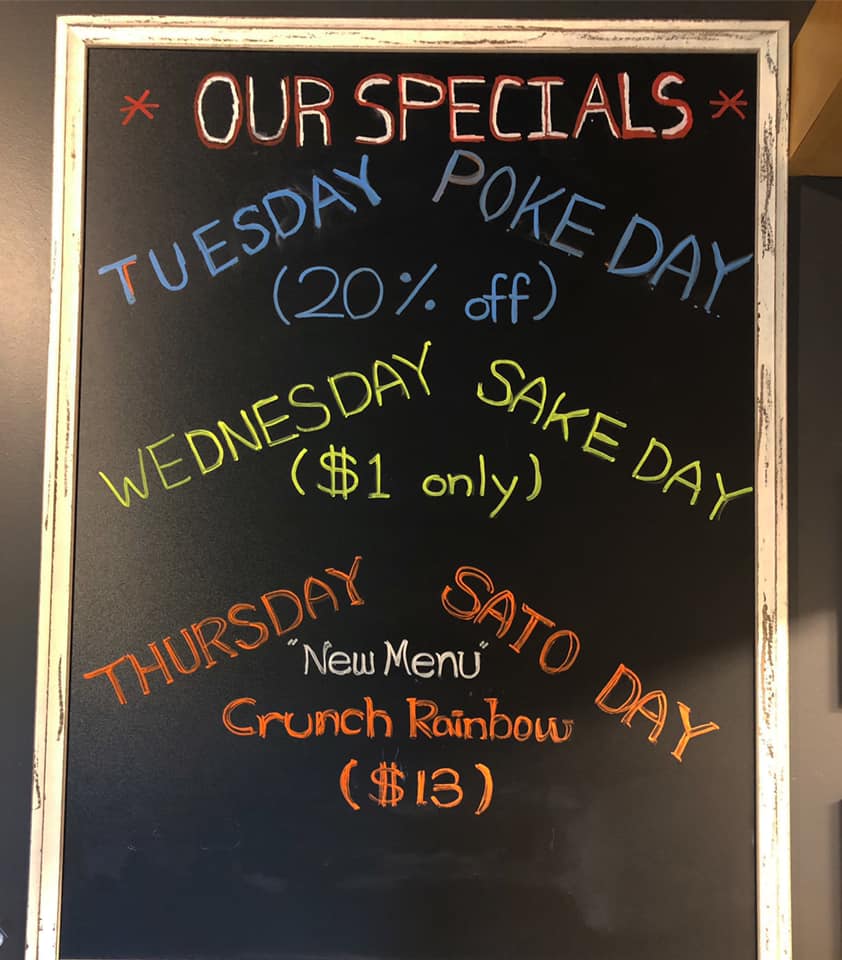 * OUR SPECIALS *
TUESDAY POKE DAY
(20% off)
WEDNESDAY SAKE DAY
($1 only)
THURSDAY SATO DAY
"New Menu"
Crunch Rainbow
($13)